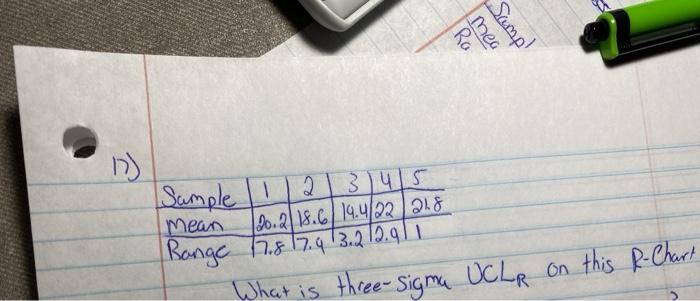 Sampl
mea
Ra
17)
Sample 1 2 3 4 5
mean 20.2 18.6 19.4 22 21.8
Range 7.8 7.9 3.2 2.9 1
What is three-sigma UCLR on this R-Chart